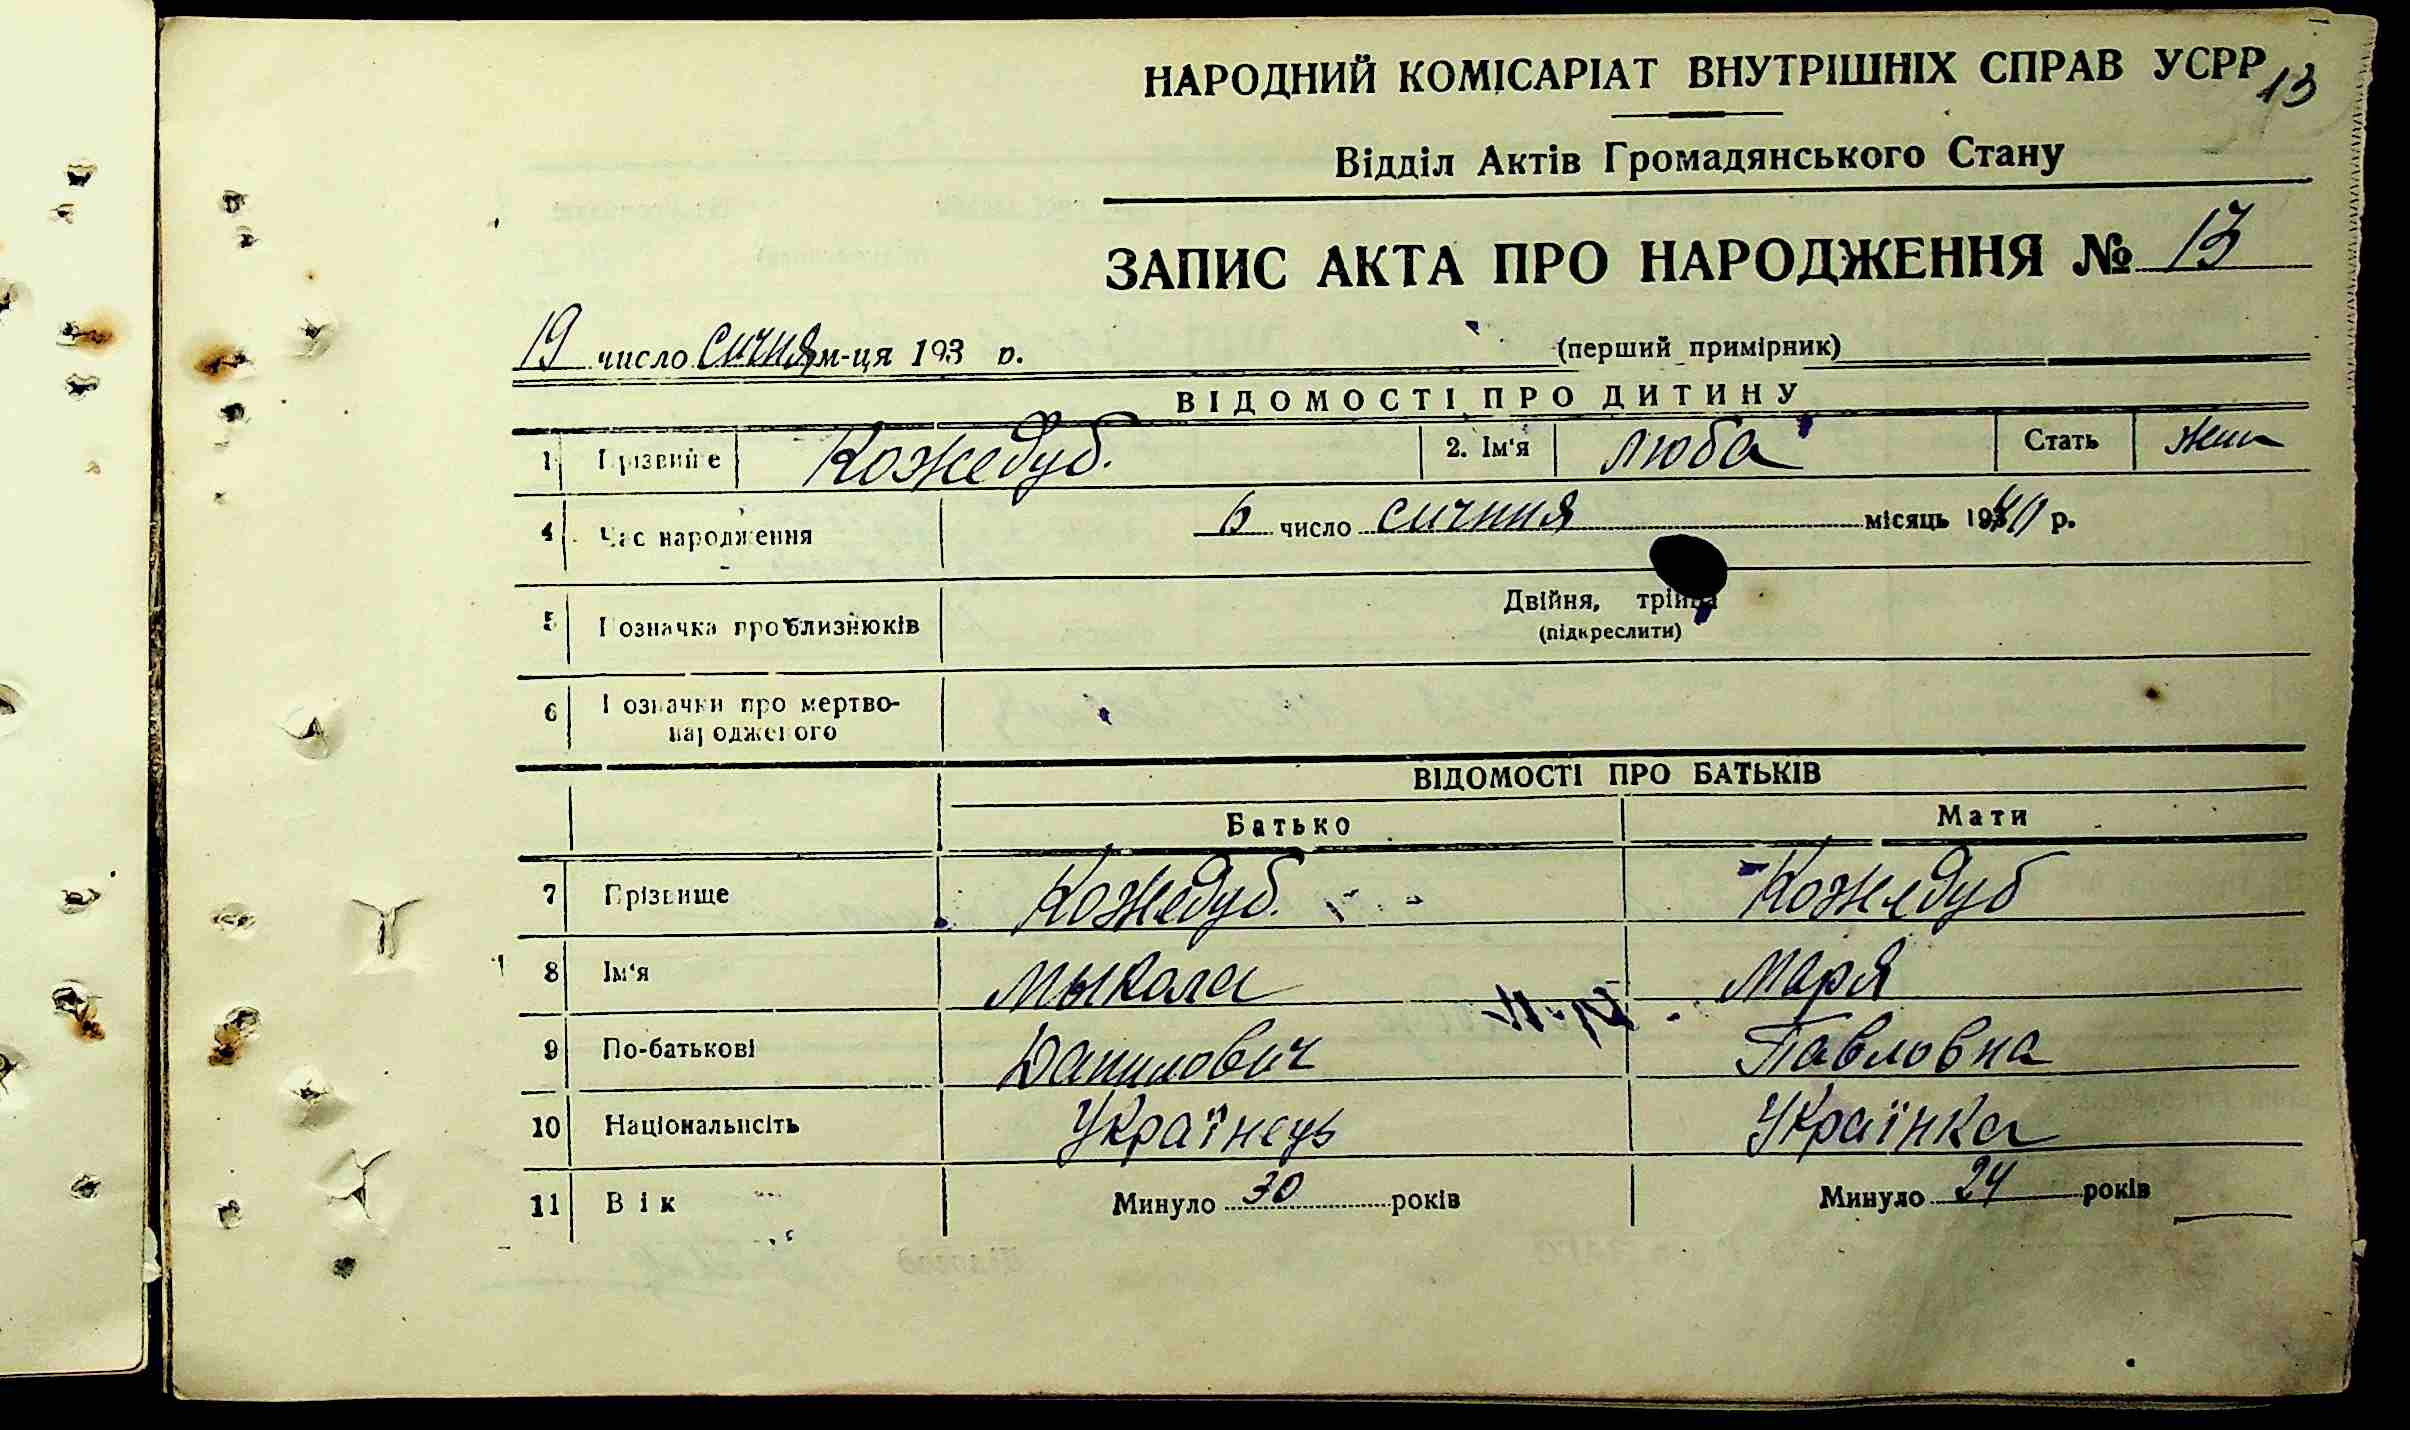 НАРОДНИЙ КОМІСАРІАТ ВНУТРІШНІХ СПРАВ УСРР
13
Відділ Актів Громадянського Стану
ЗАПИС АКТА ПРО НАРОДЖЕННЯ № 13
19 число січня м-ця 193 р. (перший примірник)
ВІДОМОСТІ ПРО ДИТИНУ
1 Прізвище Кожедуб. 2. Ім'я Люба Стать жен
4 Час народження 6 число січння місяць 1940 р.
5 Позначка про близнюків Двійня, трійня
(підкреслити)
6 Позначки про мертво-
народженого
ВІДОМОСТІ ПРО БАТЬКІВ
Батько Мати
7 Прізвище Кожедуб. Кожедуб
8 Ім'я Мыкола Маря
9 По-батькові Данилович Павловна
10 Національність Українець Українка
11 Вік Минуло 30 років Минуло 24 років